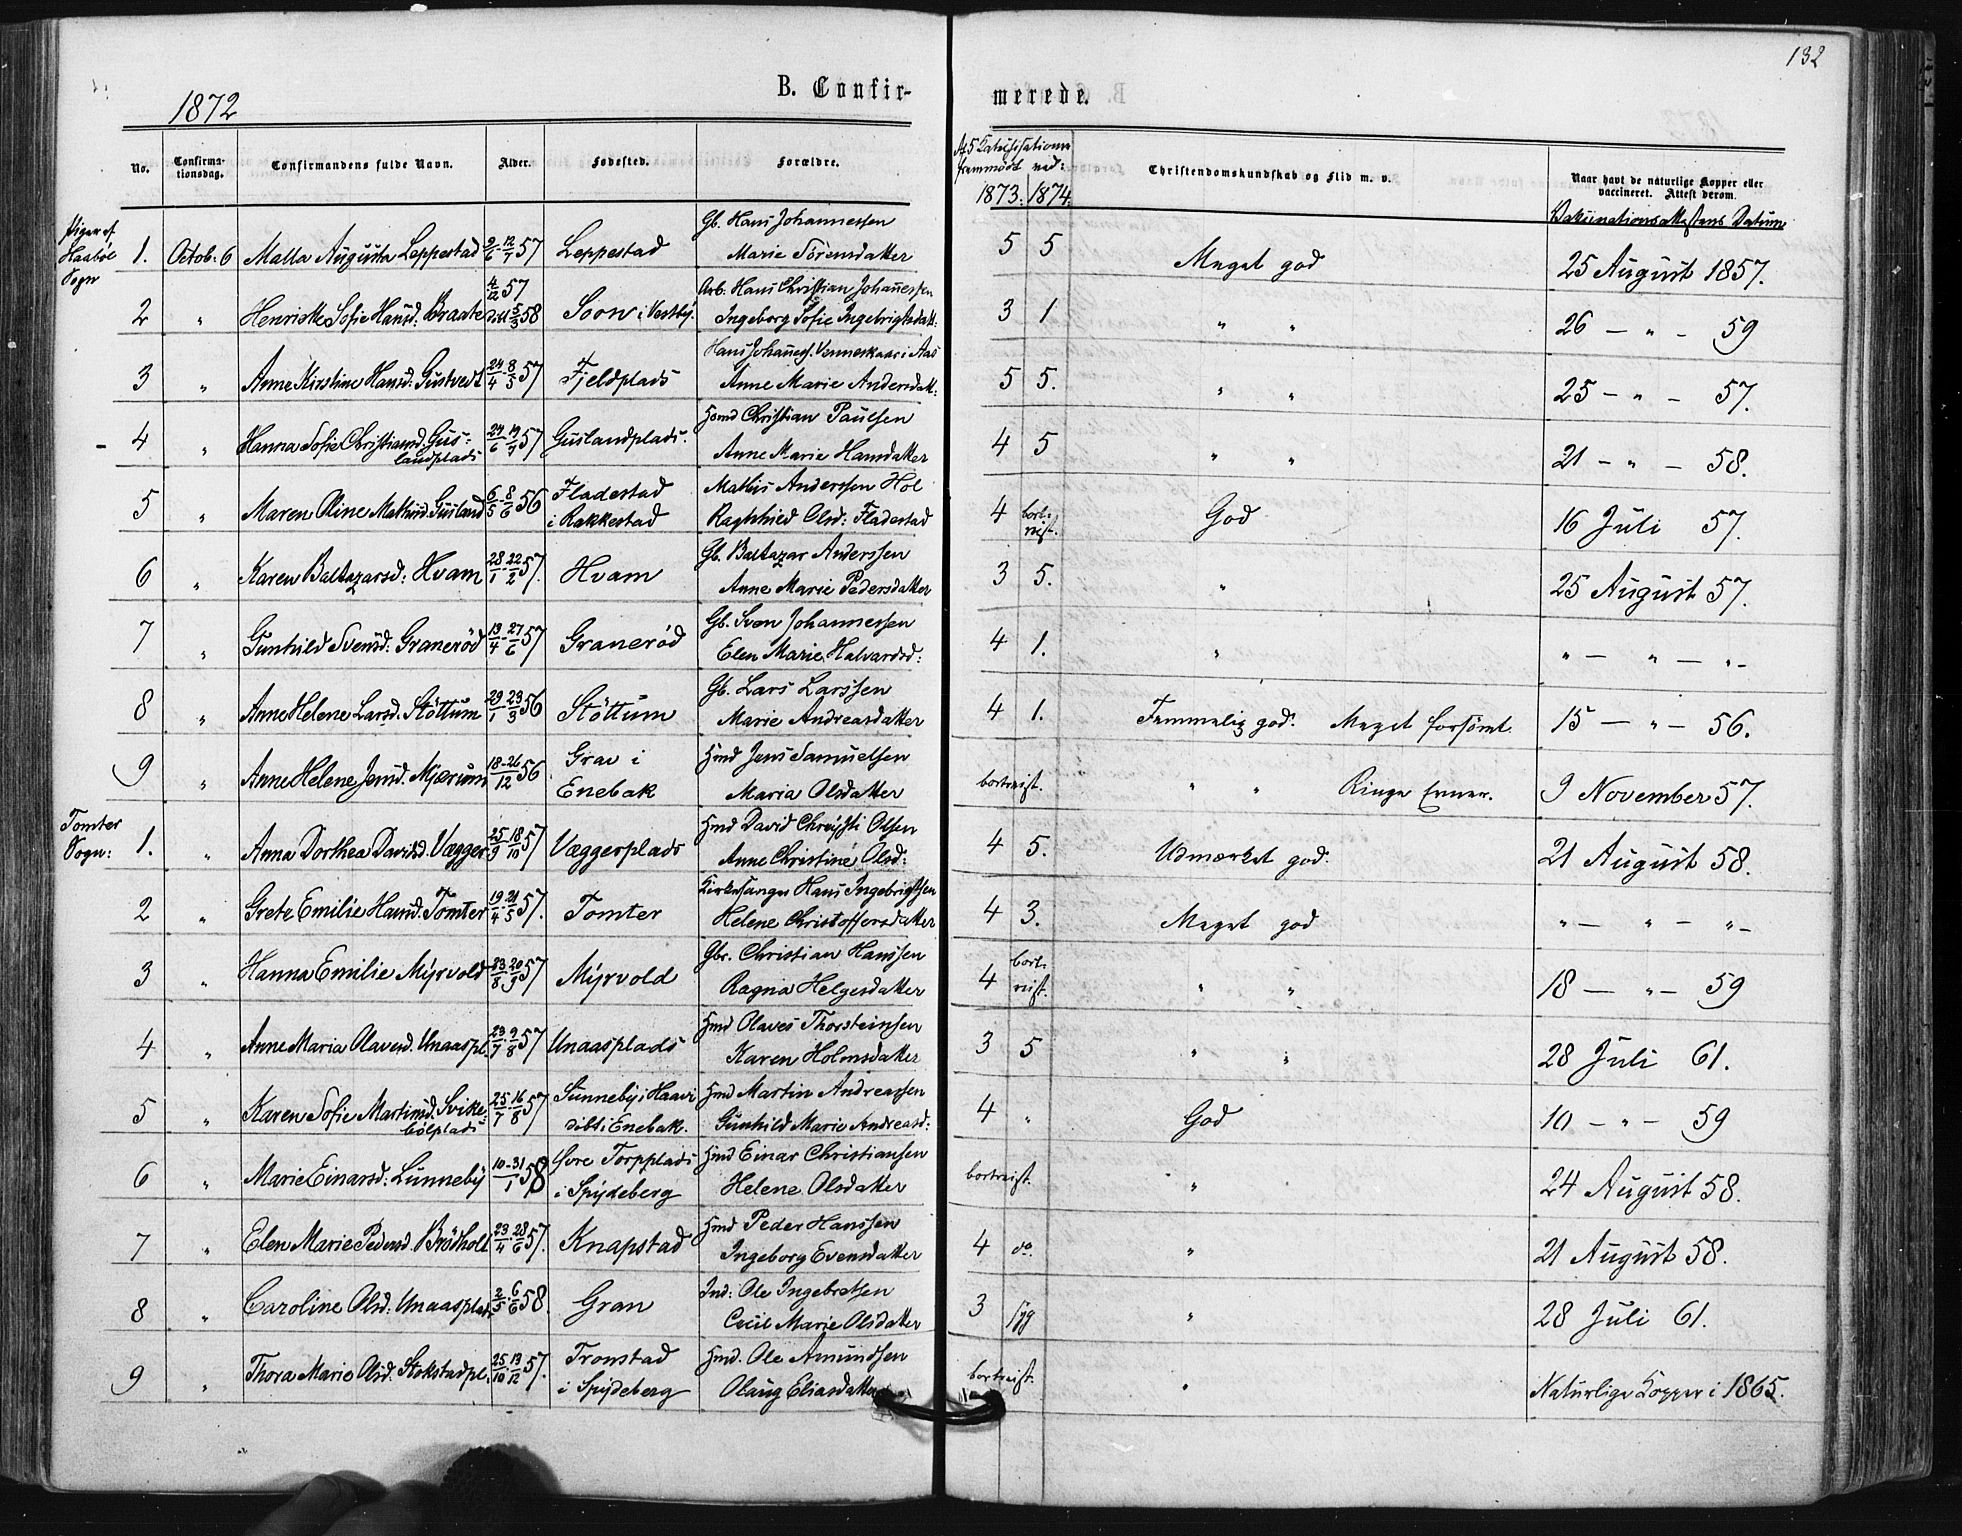 132
1872
B. Confir-
merede.
No.
Confirma-
tionsdag.
Confirmandens fulde Navn.
Alder.
Fødested.
Forældre.
Af 5 Katekisationer
fremmødt ved:
1873. 1874.
Christendomskundskab og Flid m. v.
Naar havt de naturlige Kopper eller
vaccineret. Attest derom.
Vakcinationsattestens Datum
Piger af
Haabøl
Sogn
1. Octob. 6 Malla Augusta Leppestad 9/6-12/7 57 Leppestad Gb. Hans Johannessen
Marie Sörensdatter 5 5 Meget god 25 August 1857.
2 " Henriette Sofie Hansd: Braate 4/12 57 Döbt 5/3 58 Soon i Vestby. Arb. Hans Christian Johannessen
Ingeborg Sofie Ingebrigtsdatt: 3 1 " " 26 — " — 59
3 " Anne Kirstine Hansd: Gustvedt 24/4-8/5 57 Fjeldplads Hans Johannes. Venneskaar i Aas
Anne Marie Andersdatt: 5 5. " " 25 — " — 57.
4 " Hanna Sofie Christiansd. Gus-
landplads 24/6 19/7 57 Guslandplads. Hsmd Christian Paulsen
Anne Marie Hansdatter 4 5 " " 21 — " — 58.
5 " Maren Oline Mathisd. Gusland 6/5-8/6 56 Fladestad
i Rakkestad Mathis Anderssen Hol
Raghnhied Olsd: Fladestad 4 bort-
reist. God 16 Juli 57.
6 " Karen Baltazarsd: Hvam 28/1-22/2 57. Hvam Gb. Baltazar Anderssen
Anne Marie Pedersdatter 3 5. " 25 August 57.
7 " Gunhild Svensd: Granerød 13/4-27/6 57 Granerød Gb. Sven Johannessen
Elen Marie Halvardsd: 4 1. " " — " — " —
8 " Anne Helene Larsd. Støttum 29/1-23/3 56 Støttum Gb. Lars Larssen
Marie Andreasdatter 4 1. Temmelig god. Meget forsømt. 15 — " — 56.
9 " Anne Helene Jensd. Mjærum 18-26/12 56 Grav i
Enebak Hmd Jens Samuelsen
Maria Olsdatter bortreist. " " Ringe Evner. 9 November 57.
Tomter
Sogn: 1. " Anna Dorthea Davidsd. Vægger 25/9 18/10 57. Væggerplads Hmd David Christi Olsen
Anne Christine Olsd: 4 5. Udmærket god. 21 August 58.
2 " Grete Emilie Hansd. Tomter 19/4 21/5 57. Tomter Kirkesanger Hans Ingebrigtsen
Helene Christoffersdatter 4 3. Meget god " — " — " —
3 " Hanna Emilie Myrvold 23/8 20/9 57 Myrvold Gbr. Christian Hanssen
Ragna Helgesdatter 4 bort-
reist. " " 18 — " — 59
4 " Anne Maria Olavesd. Unaaspl. 23/7 9/8 57 Unaasplads Hmd Olaves Thorsteinsen
Karen Holmsdatter 3 5 " " 28 Juli 61.
5 " Karen Sofie Martinsd. Svike-
bølplads 25/7 16/8 57 Sunneby i Haavi
döbt i Enebak. Hmd Martin Andreassen
Gunhild Marie Andreasd: 4 " God 10 — " — 59
6 " Marie Einarsd: Lunneby 10-31/1 58 Øvre Torpplads
i Spydeberg Hmd Einar Christiansen
Helene Olsdatter bortreist. " 24 August 58.
7 " Elen Marie Pedersd. Brødholt 23/4 28/6 57. Knapstad Hmd Peder Hanssen
Ingeborg Evensdatter 4 do. " 21 August 58.
8 " Caroline Olsd: Unaasplads 2/5 6/6 58. Gran Ind: Ole Ingebretsen
Cecil Marie Olsdatter 3 syg " 28 Juli 61.
9 " Thora Marie Olsd. Stokstadpl. 25/10 13/12 57. Tronstad
i Spydeberg Hmd. Ole Amundsen
Olaug Eliasdatter bortreist. " Naturlige Kopper i 1865.